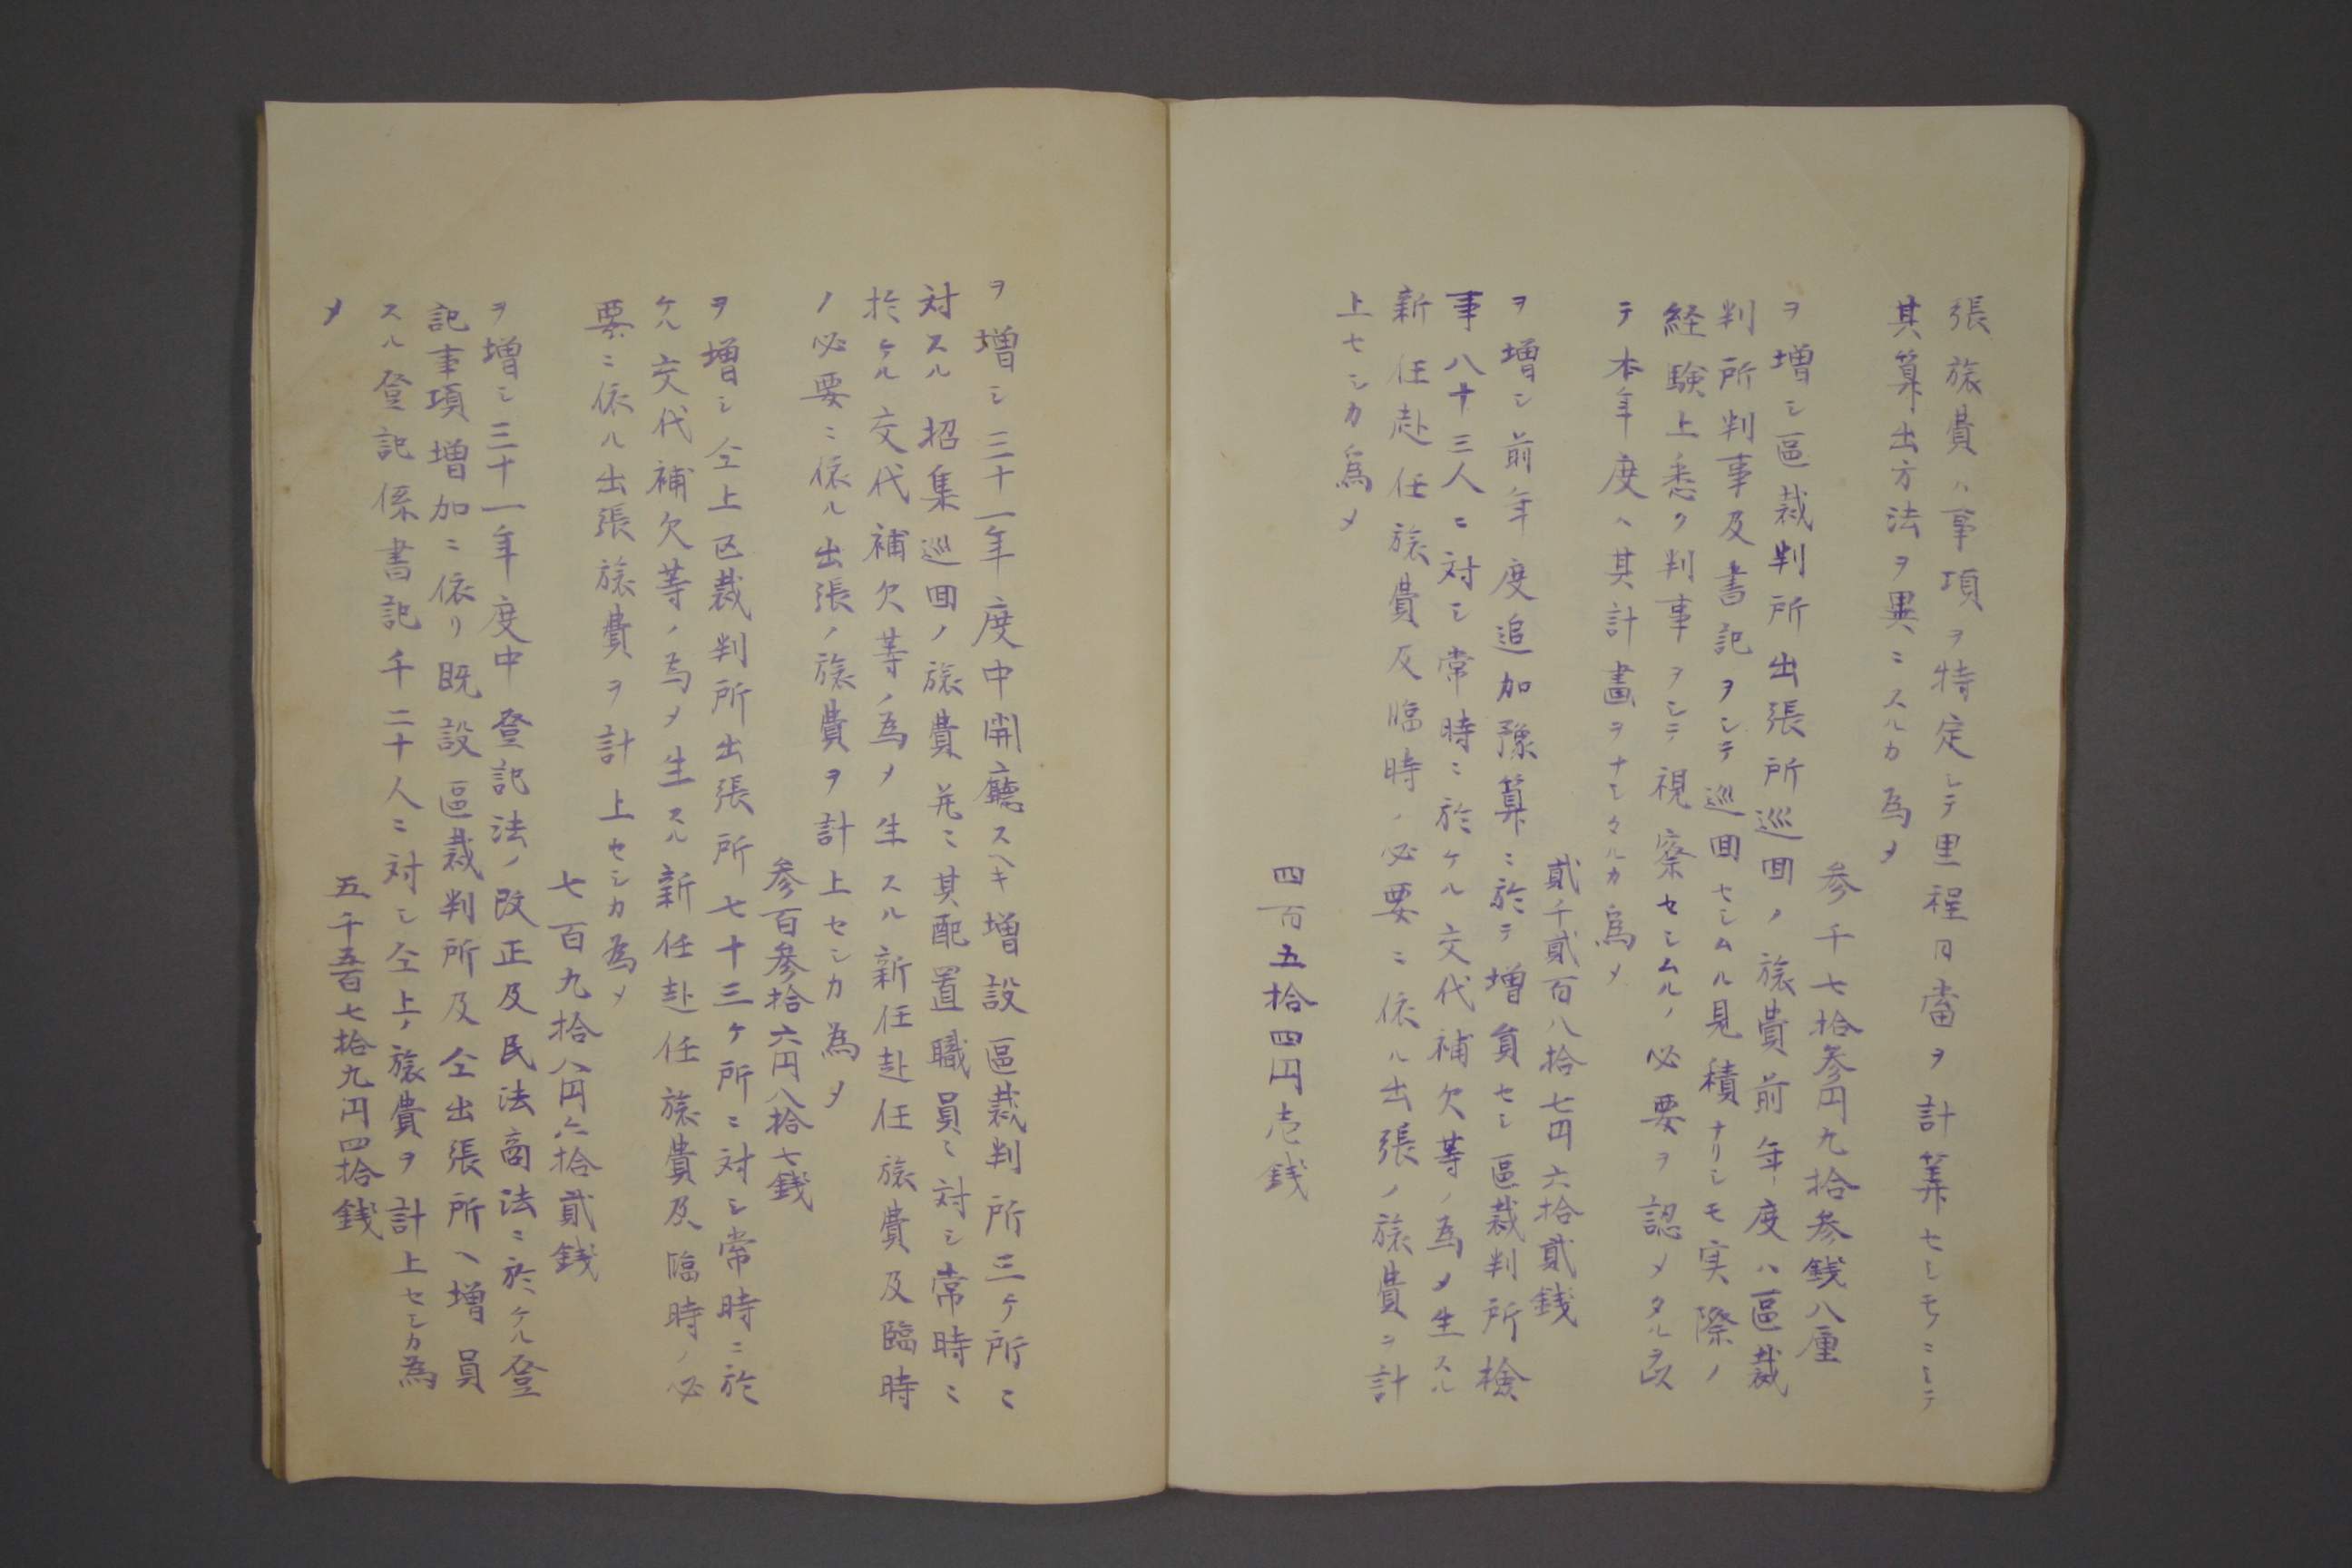 張旅費ハ事項ヲ特定シテ里程日當ヲ計算セシモノニシテ
其算出方法ヲ異ニスルカ為メ
参千七拾参円九拾参銭八厘
ヲ増シ區裁判所出張所巡回ノ旅費前年度ハ區裁
判所判事及書記ヲシテ巡回セシムル見積ナリシモ実際ノ
経験上悉ク判事ヲシテ視察セシムルノ必要ヲ認メタルヲ以
テ本年度ヘ其計畫ヲナシタルカ為メ
貳千貳百八拾七円六拾貳銭
ヲ増シ前年度追加豫算ニ於テ増負セシ區裁判所檢
事八十三人ニ対シ常時ニ於ケル交代補欠等ノ為メ生スル
新任赴任旅費及臨時ノ必要ニ依ル出張ノ旅費ヲ計
上セシカ為メ
四百五拾四円壱銭
ヲ増シ三十一年度中開廳スヘキ増設區裁判所三ケ所ニ
対スル招集巡回ノ旅費并ニ其配置職員ニ対シ常時ニ
於ケル交代補欠等ノ為メ生スル新任赴任旅費及臨時
ノ必要ニ依ル出張ノ旅費ヲ計上セシカ為メ
参百参拾六円八拾七銭
ヲ増シ仝上区裁判所出張所七十三ケ所ニ対シ常時ニ於
ケル交代補欠等ノ為メ生スル新任赴任旅費及臨時ノ必
要ニ依ル出張旅費ヲ計上セシカ為メ
七百九拾八円六拾貳銭
ヲ増シ三十一年度中登記法ノ改正及民法商法ニ於ケル登
記事項増加ニ依リ既設區裁判所及仝出張所ヘ増員
スル登記係書記千二十人ニ対シ仝上ノ旅費ヲ計上セシカ為
メ
五千五百七拾九円四拾銭